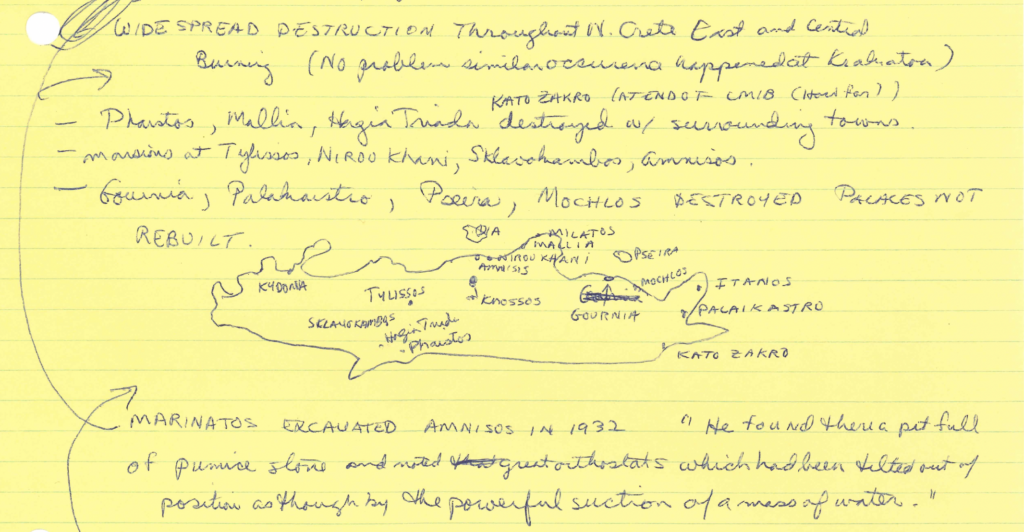 WIDESPREAD DESTRUCTION Throughout N. Crete East and Central
Burning (No problem similar occurena happened at Krakatoa)
KATO ZAKRO (AT END OF LMIB (How far?))
– Phaistos, Mallia, Hagia Triada destroyed w/ surrounding towns.
– mansions at Tylissos, NIROU Khani, Sklavokambos, Amnisos.
– Gournia, Palaikaistro, Pseira, MOCHLOS DESTROYED PALACES NOT
REBUILT.
MILATOS
MALLIA
NIROU KHANI
AMNISIS
PSEIRA
KYDONIA
MOCHLOS
ITANOS
TYLISSOS
KNOSSOS
GOURNIA
PALAIKASTRO
SKLAVOKAMBOS
Hagia Triada
Phaistos
KATO ZAKRO
MARINATOS EXCAVATED AMNISOS IN 1932 "He found there a pit full
of pumice stone and noted that great orthostats which had been tilted out of
position as though by the powerful suction of a mass of water."